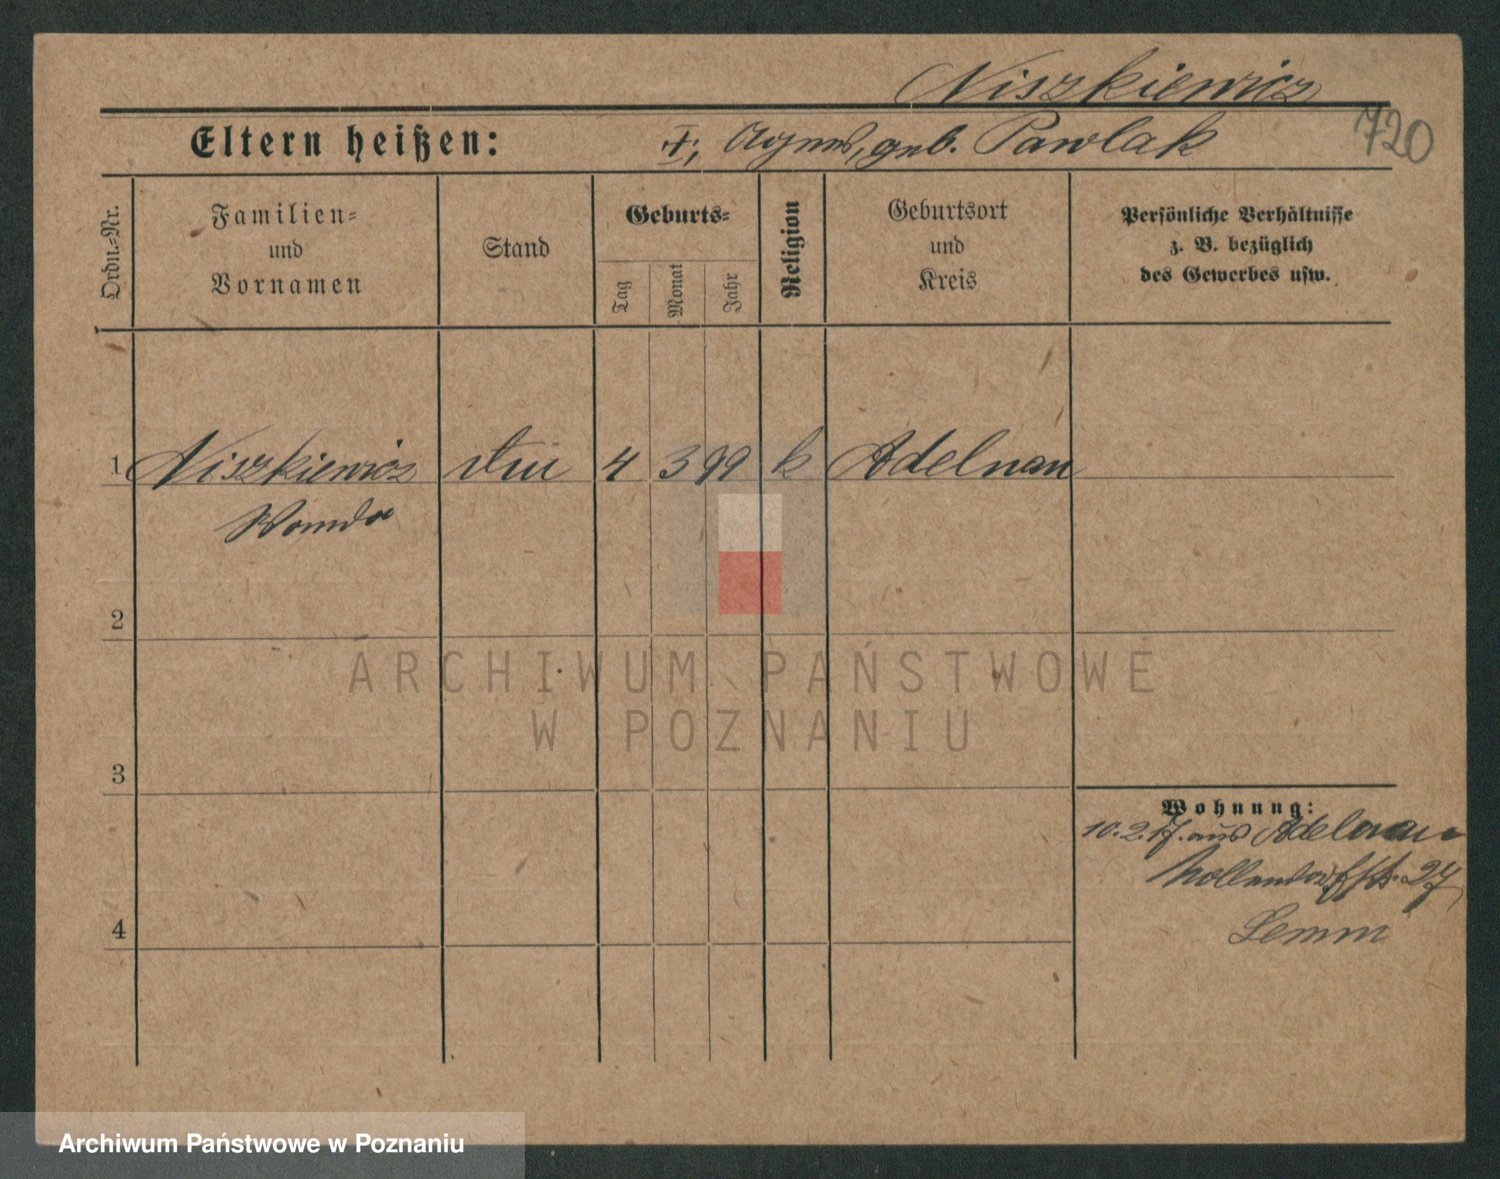 Niszkiewicz
720
Eltern heißen: †, Agnes, geb. Pawlak
Ordn.=Nr.
Familien=
und
Vornamen
Stand
Geburts=
Tag
Monat
Jahr
Religion
Geburtsort
und
Kreis
Persönliche Verhältnisse
z. B. bezüglich
des Gewerbes usw.
1 Niszkiewicz 4 3 99 k Adelnau
Wanda
2
3
4
Wohnung:
10.2.17. aus Adelnau
Nollendorfstr. 27
Lemm
ARCHIWUM PAŃSTWOWE
W POZNANIU
Archiwum Państwowe w Poznaniu